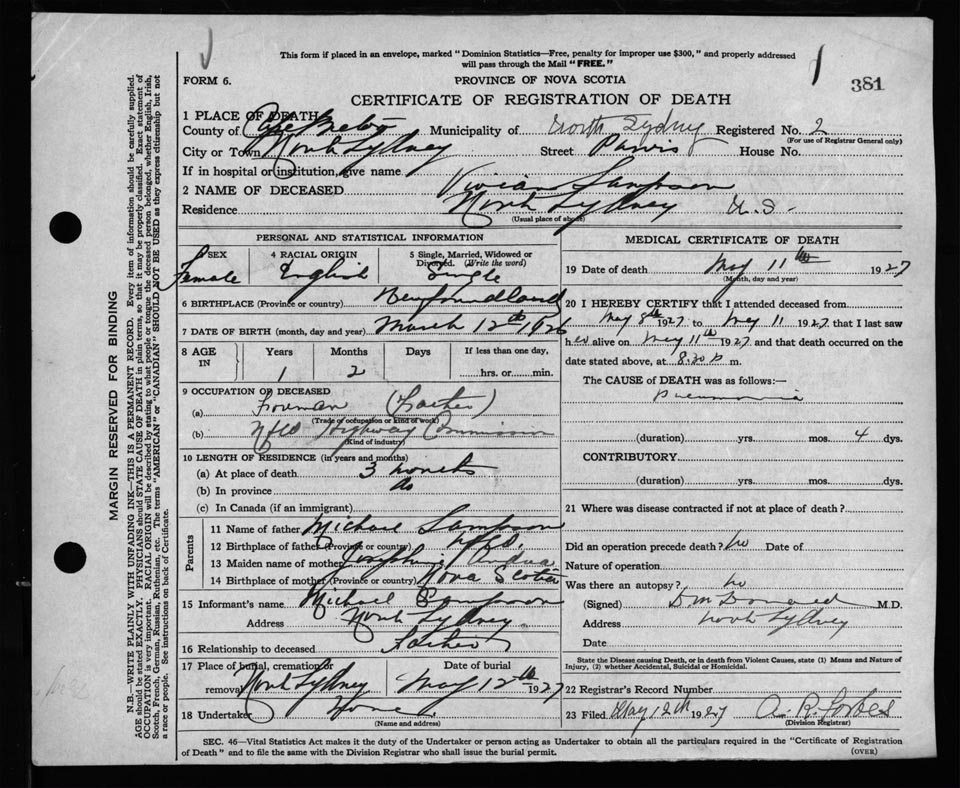 This form if placed in an envelope, marked "Dominion Statistics—Free, penalty for improper use $300," and properly addressed
will pass through the Mail "FREE."
FORM 6.
PROVINCE OF NOVA SCOTIA
381
CERTIFICATE OF REGISTRATION OF DEATH
1 PLACE OF DEATH
County of Cape Breton Municipality of North Sydney Registered No. 2
(For use of Registrar General only)
City or Town North Sydney Street House No.
If in hospital or institution, give name
2 NAME OF DECEASED Vivian Sampson
Residence North Sydney N.S.
(Usual place of abode)
PERSONAL AND STATISTICAL INFORMATION
3 SEX Female
4 RACIAL ORIGIN English
5 Single, Married, Widowed or Divorced. (Write the word) Single
6 BIRTHPLACE (Province or country) Newfoundland
7 DATE OF BIRTH (month, day and year) March 12th 1926
8 AGE IN Years Months Days If less than one day,
1 2 hrs. or min.
9 OCCUPATION OF DECEASED
(a) Forman (Father)
(Trade or occupation or kind of work)
(b) Nfld Highway Commission
(Kind of industry)
10 LENGTH OF RESIDENCE (in years and months)
(a) At place of death 3 months
(b) In province do
(c) In Canada (if an immigrant)
Parents
11 Name of father Michael Sampson
12 Birthplace of father (Province or country) Nfld.
13 Maiden name of mother Josephine
14 Birthplace of mother (Province or country) Nova Scotia
15 Informant's name Michael Sampson
Address North Sydney
16 Relationship to deceased Father
17 Place of burial, cremation or removal North Sydney
Date of burial May 12th 1927
18 Undertaker None
(Name and address)
MEDICAL CERTIFICATE OF DEATH
19 Date of death May 11th 1927
(Month, day and year)
20 I HEREBY CERTIFY that I attended deceased from
May 8th 1927 to May 11 1927 that I last saw
her alive on May 11th 1927 and that death occurred on the
date stated above, at 8.30 p m.
The CAUSE OF DEATH was as follows:—
Pneumonia
(duration) yrs. mos. 4 dys.
CONTRIBUTORY
(duration) yrs. mos. dys.
21 Where was disease contracted if not at place of death?
Did an operation precede death? No Date of
Nature of operation
Was there an autopsy? No
(Signed) M.D.
Address North Sydney
Date
State the Disease causing Death, or in death from Violent Causes, state (1) Means and Nature of
Injury, (2) whether Accidental, Suicidal or Homicidal.
22 Registrar's Record Number
23 Filed May 12th 1927 A. R. Forbes
(Division Registrar)
SEC. 46—Vital Statistics Act makes it the duty of the Undertaker or person acting as Undertaker to obtain all the particulars required in the "Certificate of Registration
of Death" and to file the same with the Division Registrar who shall issue the burial permit.
(OVER)
MARGIN RESERVED FOR BINDING
N.B.—WRITE PLAINLY WITH UNFADING INK—THIS IS A PERMANENT RECORD. Every item of information should be carefully supplied.
AGE should be stated EXACTLY. PHYSICIANS should STATE CAUSE OF DEATH in plain terms, so that it may be properly classified. Exact statement of
OCCUPATION is very important. RACIAL ORIGIN will be described by stating to what people or tongue the deceased person belonged, whether English, Irish,
Scotch, French, German, Russian, Ruthenian, etc. The terms "AMERICAN" or "CANADIAN" SHOULD NOT BE USED as they express citizenship but not
a race or people. See instructions on back of Certificate.